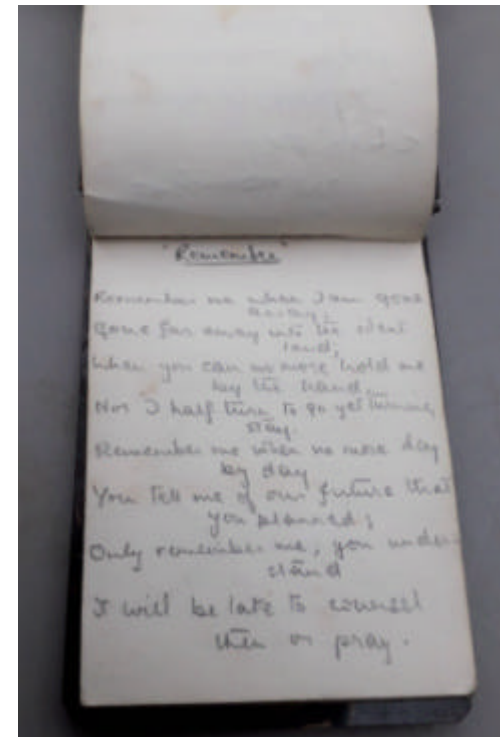 "Remember"
Remember me when I am gone
away,
gone far away into the silent
land;
when you can no more hold me
by the hand,
Nor I half turn to go yet turning
stay.
Remember me when no more day
by day
You tell me of our future that
you planned;
Only remember me, you under-
stand
I will be late to counsel
then or pray.